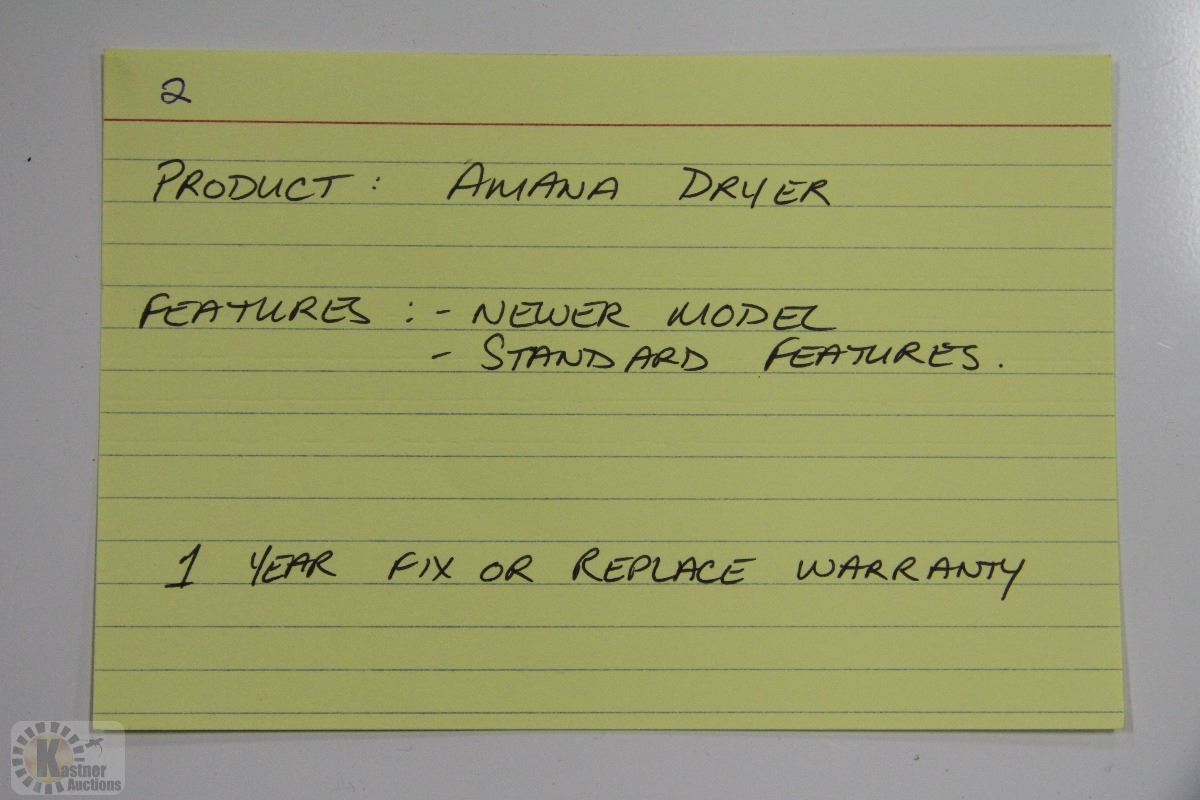 2
PRODUCT: AMANA DRYER
FEATURES: - NEWER MODEL
- STANDARD FEATURES.
1 YEAR FIX OR REPLACE WARRANTY
Kastner
Auctions